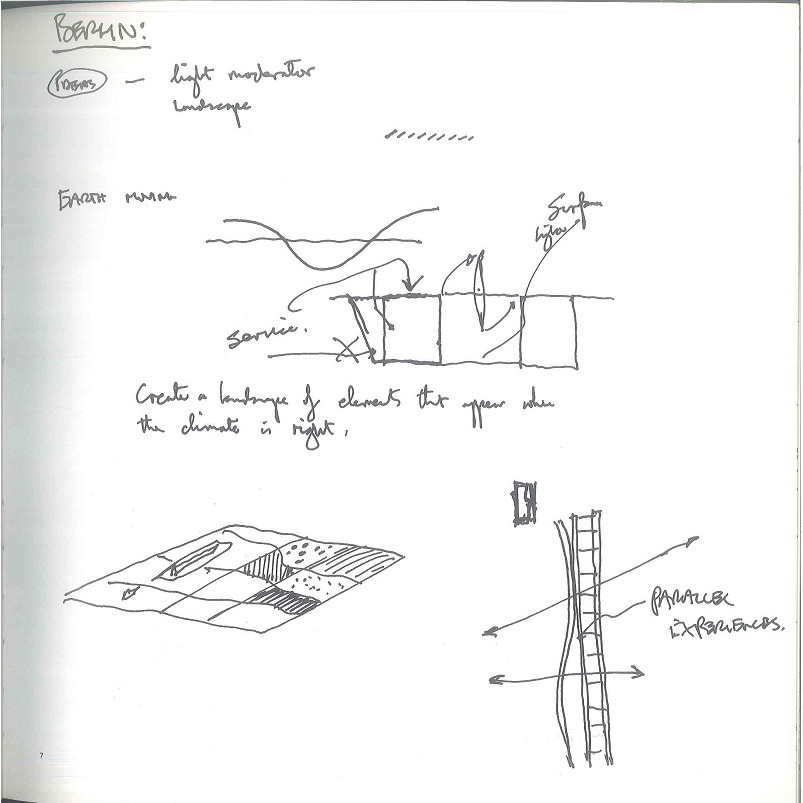 BERLIN:
IDEAS — light moderator
landscape
EARTH MOVING
Surface
Service.
Create a landscape of elements that appear when
the climate is right.
PARALLEL
EXPERIENCES.
7